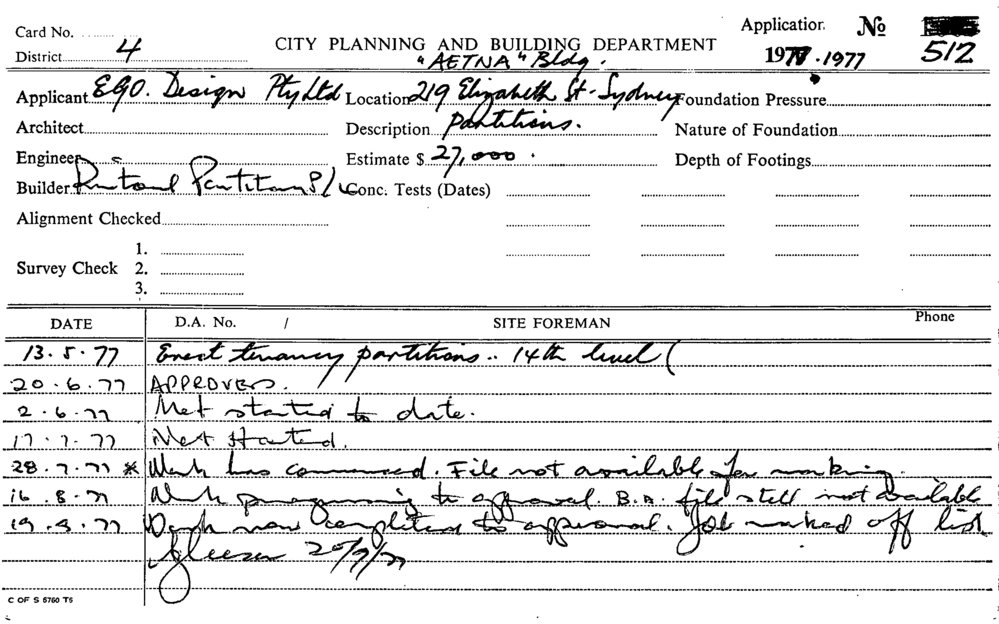 Card No.
Application No
District 4
CITY PLANNING AND BUILDING DEPARTMENT
197 . 1977
512
"AETNA" Bldg.
Applicant EGO. Design Pty Ltd Location 219 Elizabeth St. Sydney Foundation Pressure
Architect Description Partitions. Nature of Foundation
Engineer Estimate $ 27,000. Depth of Footings
Builder Partitions P/L Conc. Tests (Dates)
Alignment Checked
1.
Survey Check 2.
3.
DATE D.A. No. / SITE FOREMAN Phone
13.5.77 Erect tenancy partitions.. 14th level (
20.6.77 APPROVED.
2.6.77 Not started to date.
17.7.77 Not Started.
28.7.77 * Work has commenced. File not available for marking.
16.8.77 Work progressing to approval. B.A. file still not available
19.9.77 Work now completed to approval. Job marked off list
20/9/77
C OF S 5760 T5